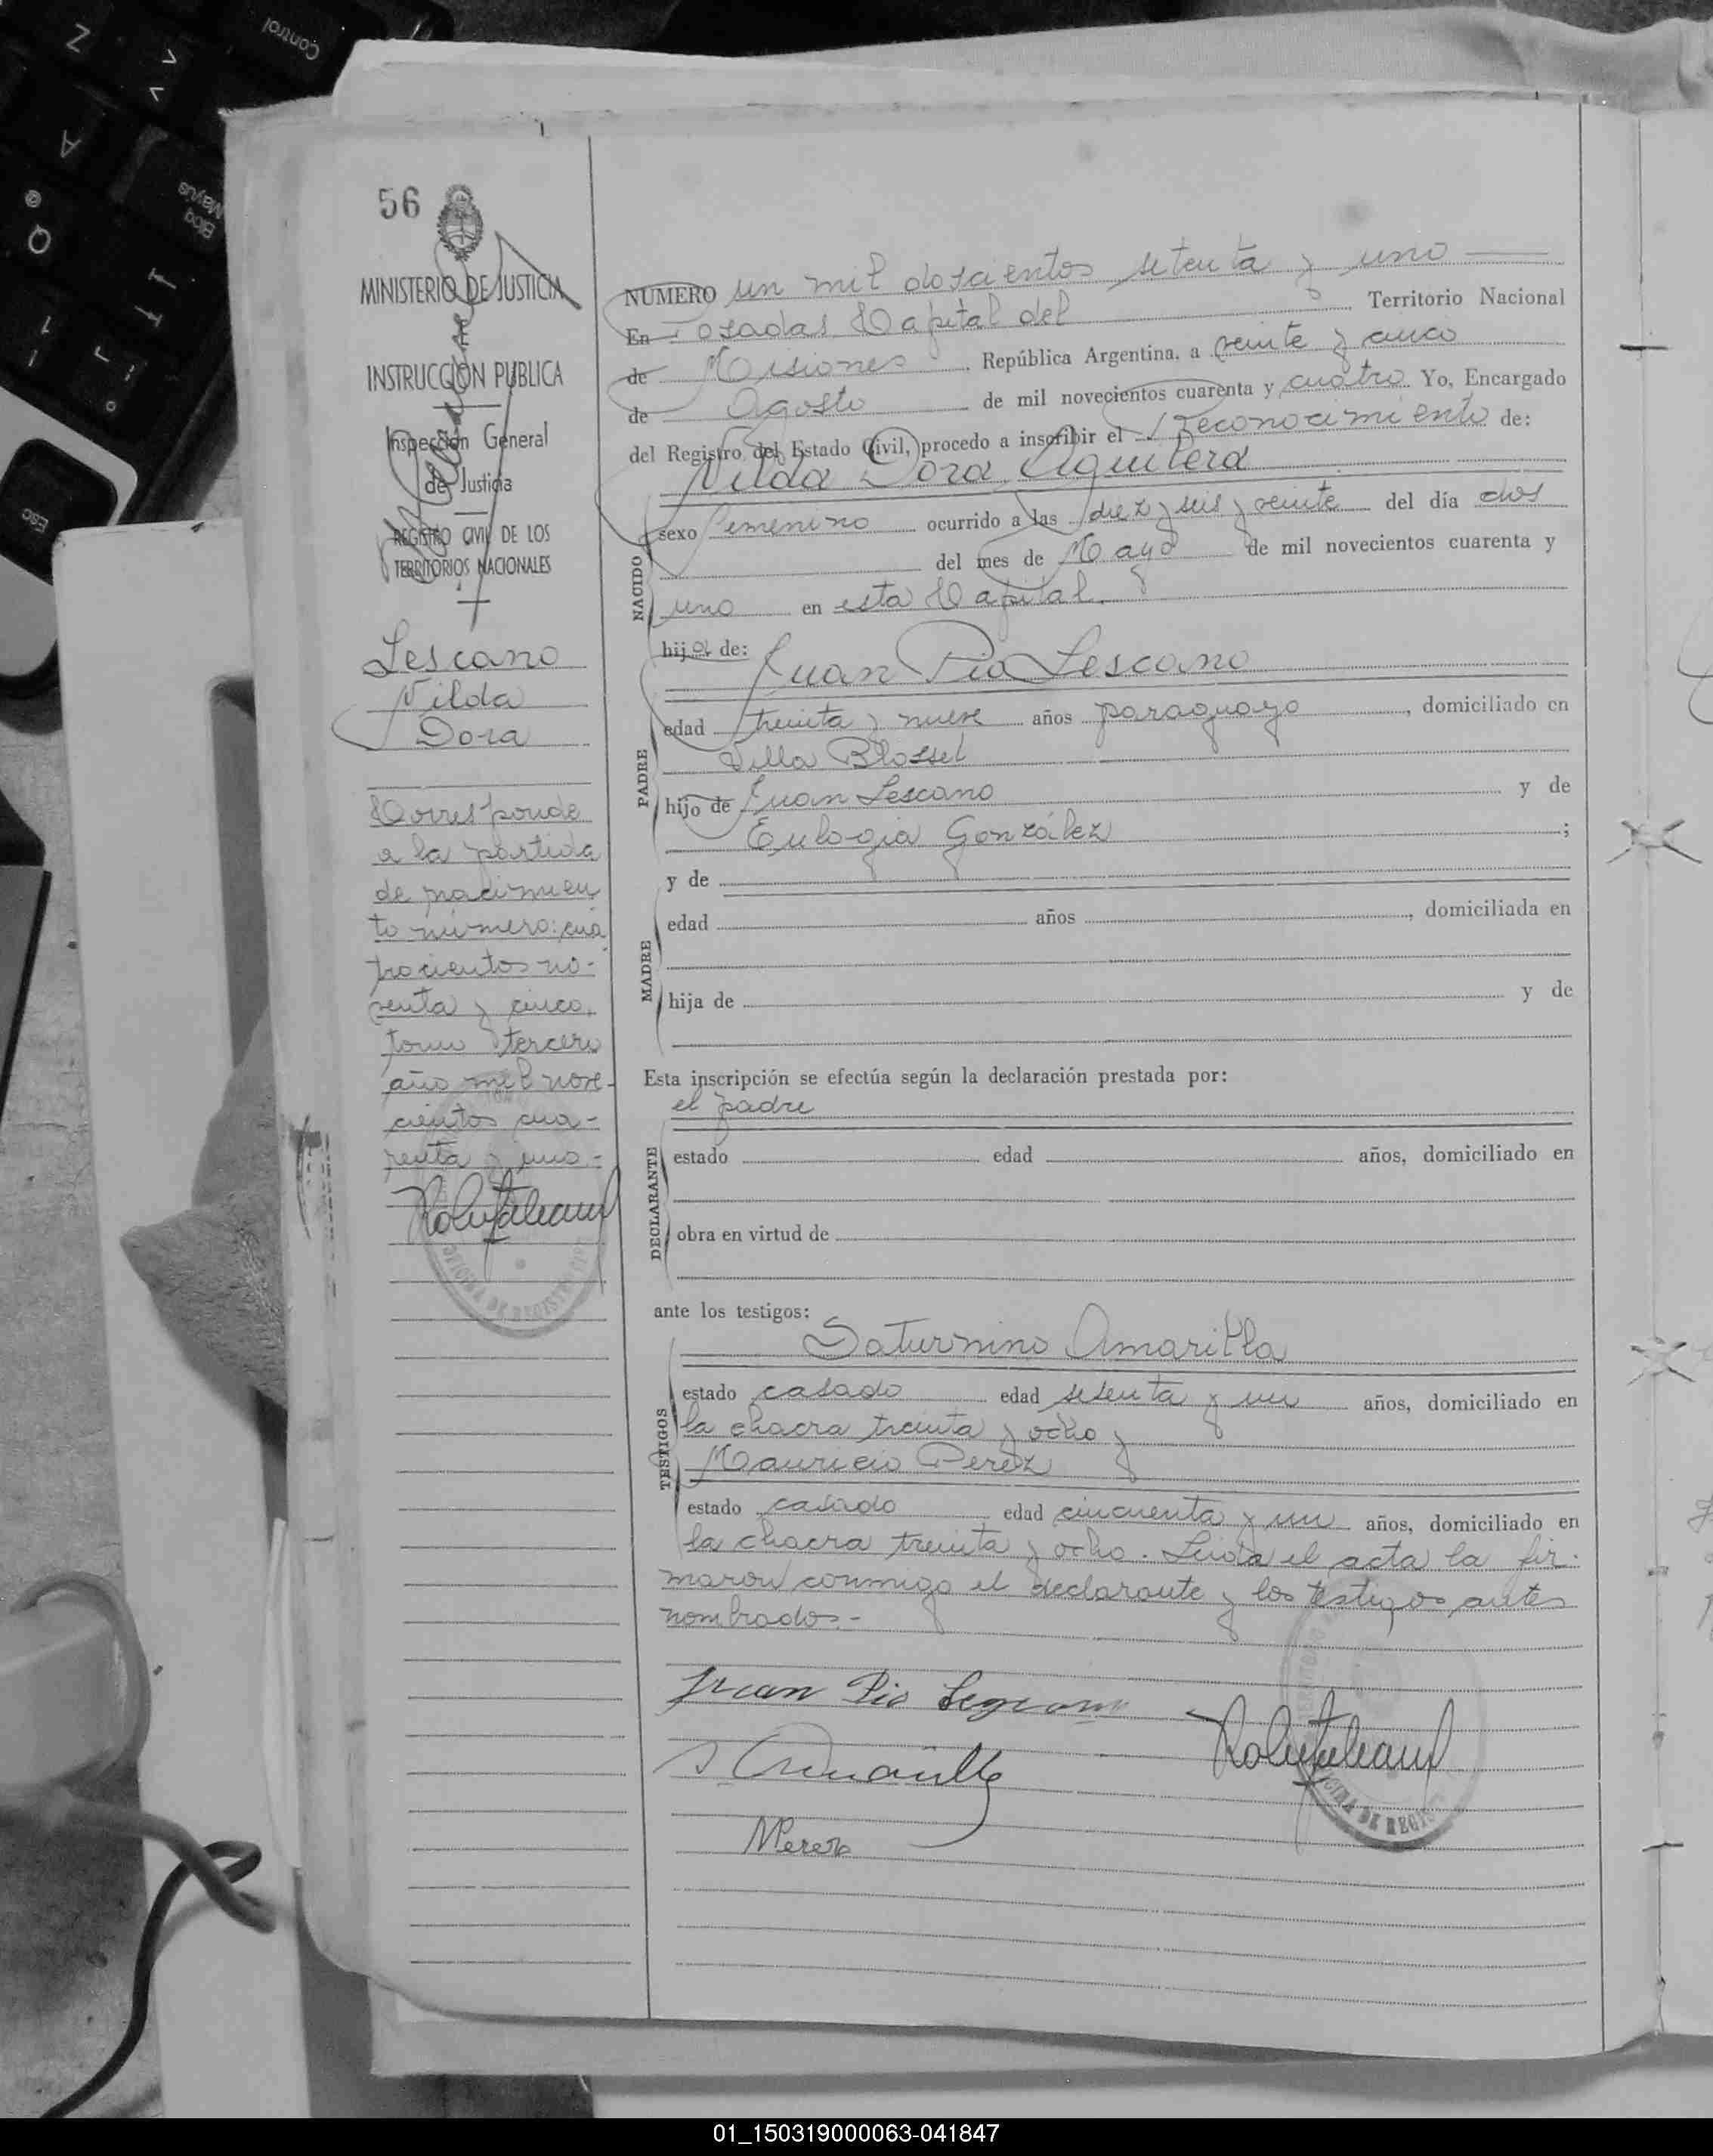 56
MINISTERIO DE JUSTICIA
INSTRUCCION PUBLICA
Inspección General
de Justicia
REGISTRO CIVIL DE LOS
TERRITORIOS NACIONALES
Lescano
Nilda
Dora
Corresponde
a la partida
de nacimien
to número: cua
trocientos no-
venta y cinco,
tomo tercero
año mil nove-
cientos cua-
renta y uno.-
NUMERO un mil doscientos setenta y uno
En Posadas Capital del Territorio Nacional
de Misiones, República Argentina, a veinte y cinco
de Agosto de mil novecientos cuarenta y cuatro Yo, Encargado
del Registro del Estado Civil, procedo a inscribir el Reconocimiento de:
Nilda Dora Aguilera
NACIDO
sexo femenino ocurrido a las diez y seis y veinte del día dos
del mes de Mayo de mil novecientos cuarenta y
uno en esta Capital.
hija de:
Juan Pio Lescano
PADRE
edad treinta y nueve años paraguayo, domiciliado en
Villa Blosset
hijo de Juan Lescano y de
Eulogia González;
y de
MADRE
edad años, domiciliada en
hija de y de
Esta inscripción se efectúa según la declaración prestada por:
el padre
DECLARANTE
estado edad años, domiciliado en
obra en virtud de
ante los testigos:
Saturnino Amarilla
TESTIGOS
estado casado edad setenta y un años, domiciliado en
la chacra treinta y ocho y
Mauricio Perez
estado casado edad cincuenta y un años, domiciliado en
la chacra treinta y ocho. Leida el acta la fir-
maron conmigo el declarante y los testigos antes
nombrados.-
Juan Pio Lezcano
S Amarilla
MPerez
OFICINA DE REGISTRO
01_150319000063-041847